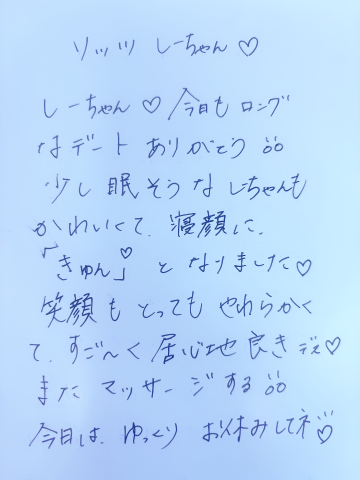 ソッツ しーちゃん♡
しーちゃん♡今日もロング
なデートありがとう
少し眠そうなしーちゃんも
かわいくて、寝顔に、
「きゅん♡」となりました♡
笑顔もとってもやわらかく
て、すご〜く居心地良きデス♡
またマッサージする
今日は、ゆっくりお休みしてネ♡